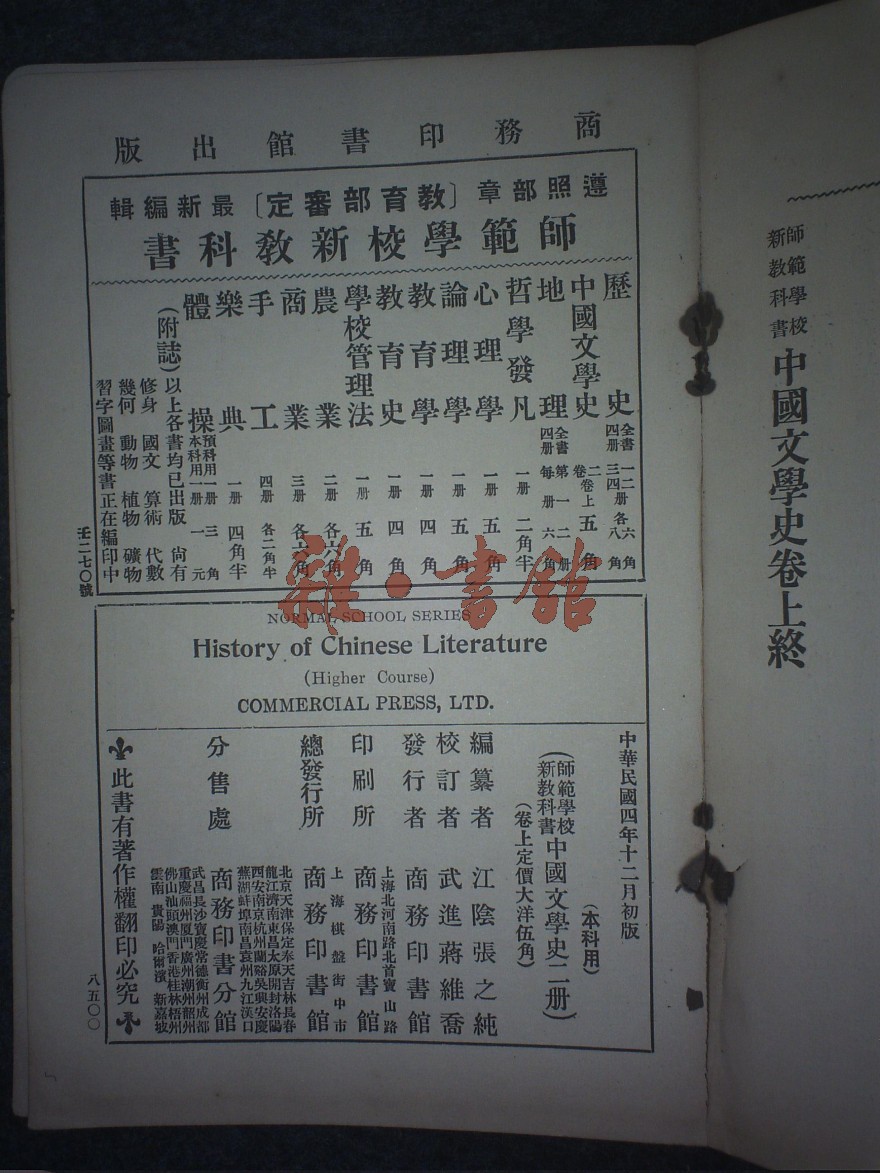 師範學校
新教科書
中國文學史卷上終
商務印書館出版
遵照部章〔教育部審定〕最新編輯
師範學校新教科書
歷史 全書四册 一二册各六角 三四册各八角
中國文學史 二卷 卷上 五角
地理 全書四册 第一二册 每册六角
哲學發凡 一册 二角半
心理學 一册 五角
論理學 一册 五角
教育學 一册 四角
教育史 一册 四角
學校管理法 一册 五角
農業 二册 各六角
商業 三册 各六角
手工 四册 各二角半
樂典 一册 四角半
體操 預科用一册三角 本科用一册一元
(附誌)以上各書均已出版 尚有
修身 國文 算術 代數
幾何 動物 植物 礦物
習字圖畫等書正在編印中
壬二七〇號
雜·書館
NORMAL SCHOOL SERIES
History of Chinese Literature
(Higher Course)
COMMERCIAL PRESS, LTD.
中華民國四年十二月初版
(本科用)
(師範學校新教科書中國文學史二册)
(卷上定價大洋伍角)
編纂者 江陰張之純
校訂者 武進蔣維喬
發行者 商務印書館
上海北河南路北首寶山路
印刷所 商務印書館
上海棋盤街中市
總發行所 商務印書館
北京天津保定奉天吉林長春
龍江濟南東昌太原開封洛陽
西安南京杭州蘭谿吳興安慶
蕪湖蚌埠南昌袁州九江漢口
分售處 商務印書分館
武昌長沙寶慶常德衡州成都
重慶福州厦門廣州潮州韶州
佛山汕頭澳門香港桂林梧州
雲南 貴陽 哈爾濱 新嘉坡
此書有著作權翻印必究
八五〇〇